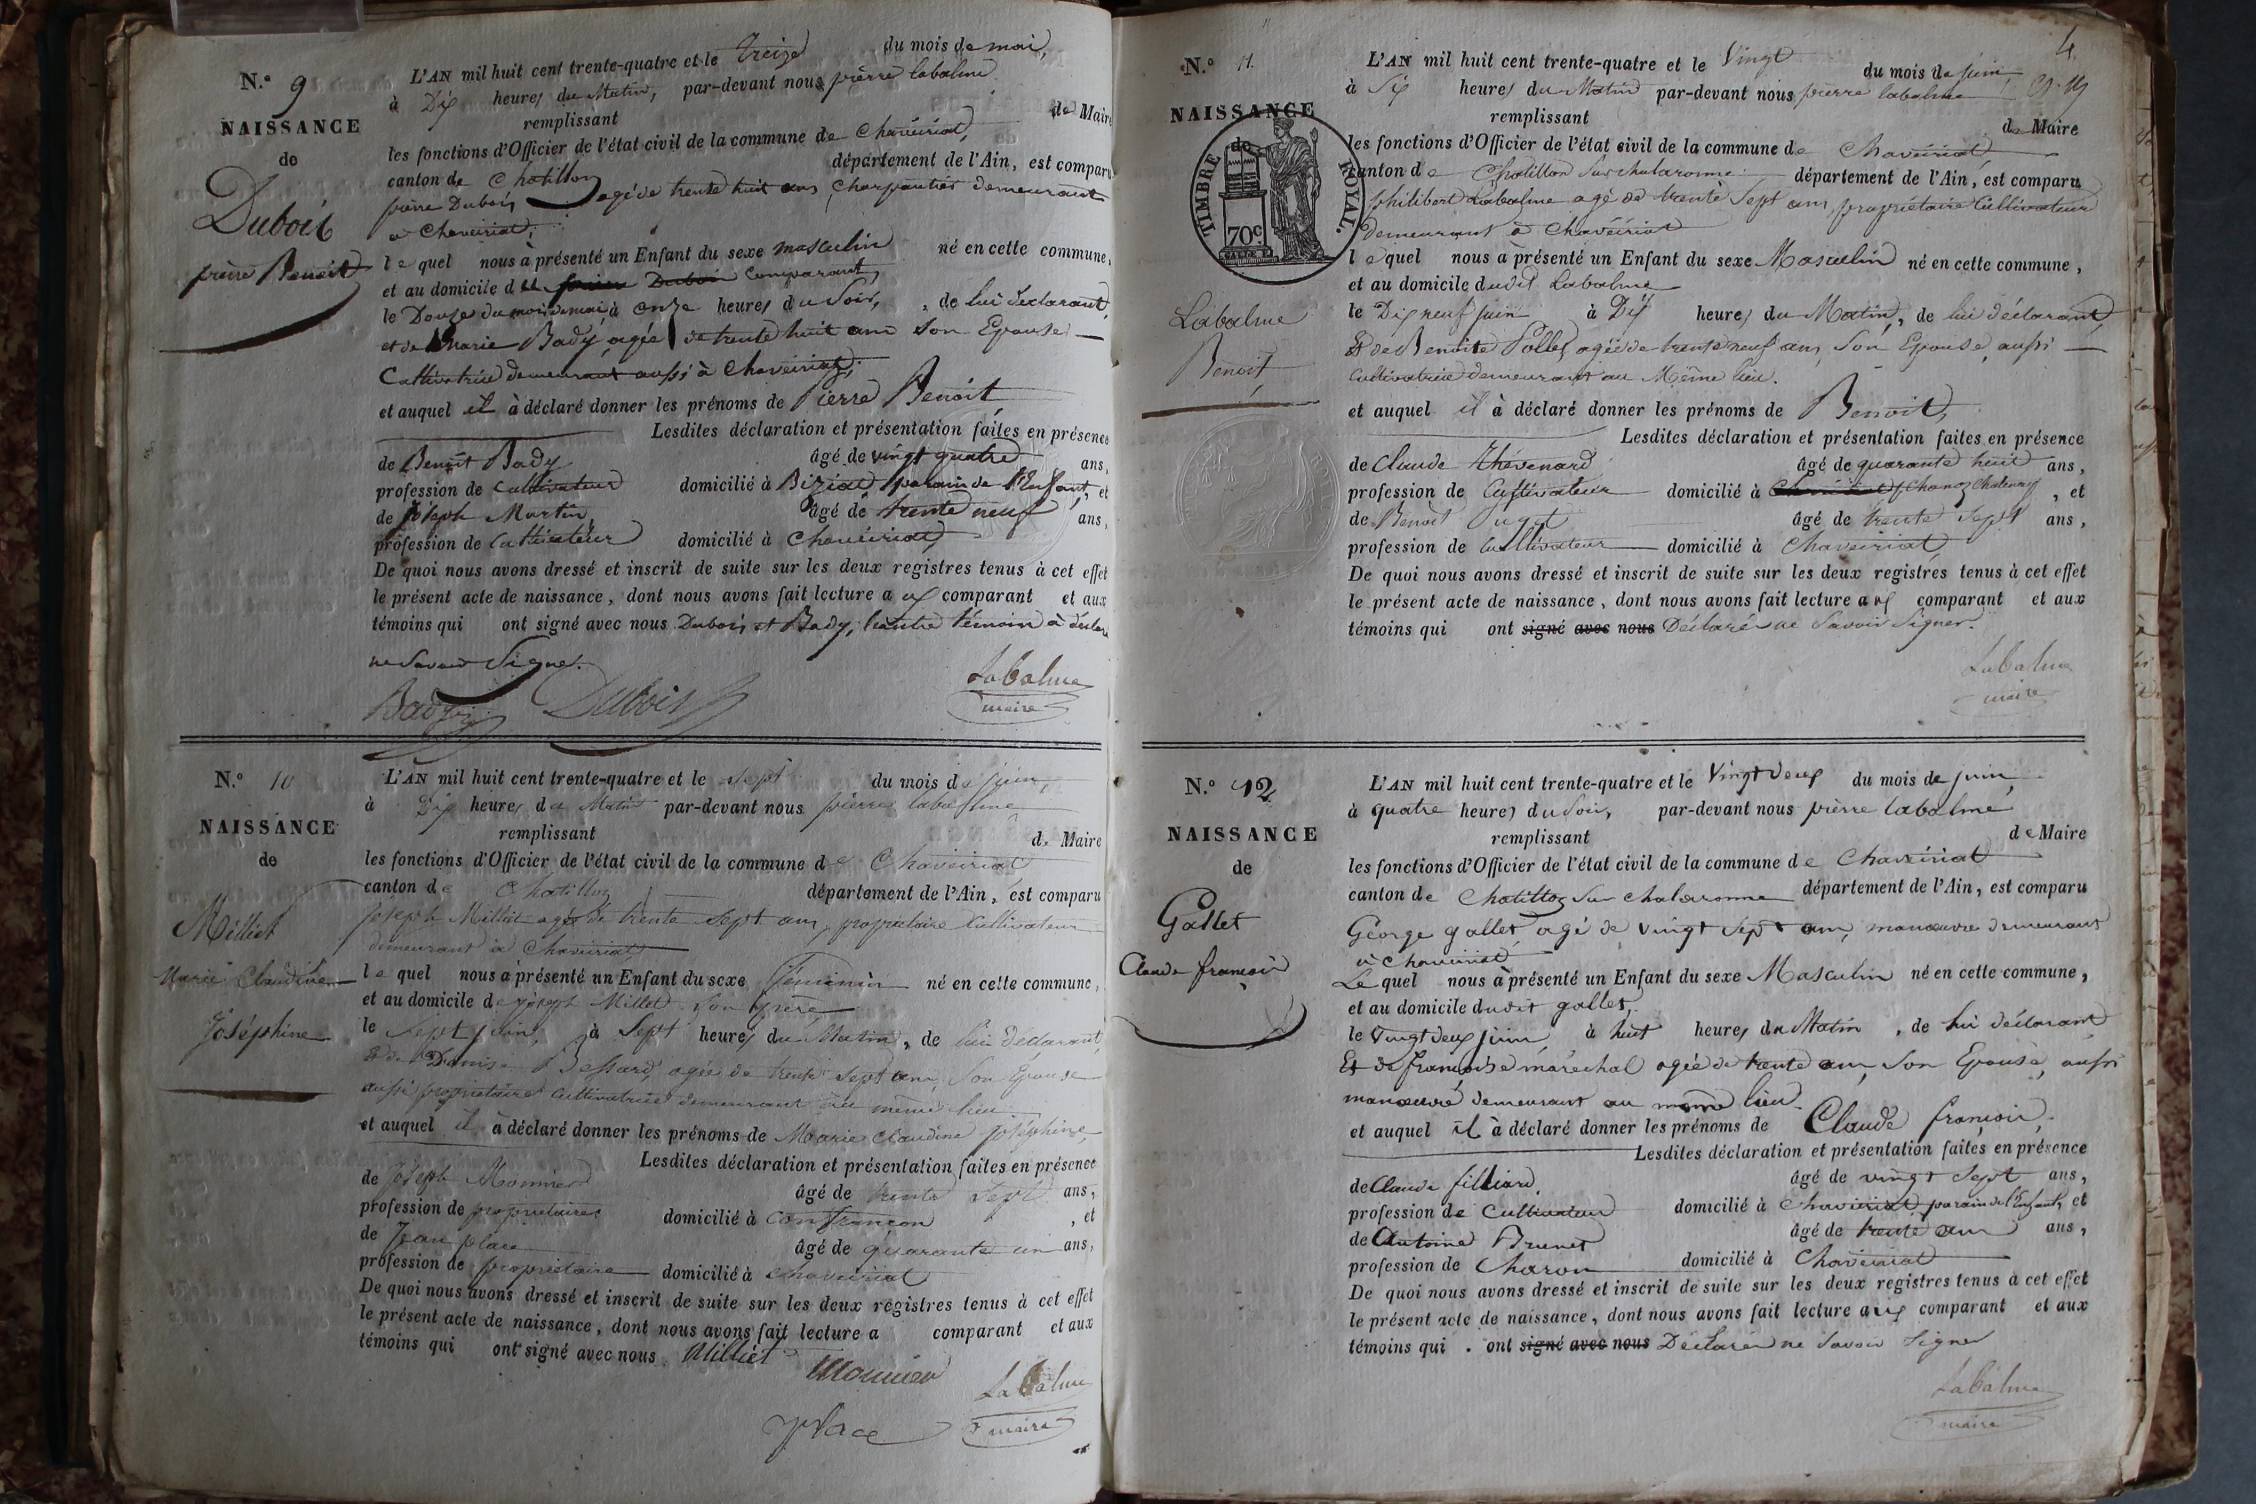 N.º 9
NAISSANCE
de
Dubois
pierre Benoit
L'AN mil huit cent trente-quatre et le Treize du mois de mai,
à Dix heures du Matin, par-devant nous pierre labalme
remplissant de Maire
les fonctions d'Officier de l'état civil de la commune de Chaveiriat,
canton de Chatillon département de l'Ain, est comparu
pierre Dubois agé de trente huit ans charpentier demeurant
à Chaveiriat,
lequel nous à présenté un Enfant du sexe masculin né en cette commune,
et au domicile du Dubois Comparant,
le Douze du mois de mai à onze heures du Soir, de lui déclarant,
et de Marie Bady, agée de trente huit ans Son Epouse
Cultivatrice demeurant aussi à Chaveiriat,
et auquel il à déclaré donner les prénoms de Pierre Benoit
Lesdites déclaration et présentation faites en présence
de Benoit Bady âgé de vingt quatre ans,
profession de cultivateur domicilié à Biziat parain de l'Enfant, et
de joseph Martin âgé de trente neuf ans,
profession de cultivateur domicilié à Chaveiriat,
De quoi nous avons dressé et inscrit de suite sur les deux registres tenus à cet effet
le présent acte de naissance, dont nous avons fait lecture aux comparant et aux
témoins qui ont signé avec nous Dubois et Bady, l'autre témoin à déclaré
ne Savoir Signer.
Bady Dubois Labalme
maire
N.º 10
NAISSANCE
de
Milliet
Marie Claudine
Joséphine
L'AN mil huit cent trente-quatre et le Sept du mois de juin,
à Dix heures du Matin par-devant nous pierre labalme
remplissant de Maire
les fonctions d'Officier de l'état civil de la commune de Chaveiriat
canton de Chatillon département de l'Ain, est comparu
joseph Milliet agé de trente sept ans, propriétaire Cultivateur
demeurant à Chaveiriat
lequel nous à présenté un Enfant du sexe féminin né en cette commune,
et au domicile de joseph Millet Son père
le Sept juin, à Sept heures du Matin, de lui déclarant,
Et de Denise Bessard, agée de trente Sept ans, Son Epouse
aussi propriétaire Cultivatrice demeurant au même lieu.
et auquel il à déclaré donner les prénoms de Marie Claudine joséphine,
Lesdites déclaration et présentation faites en présence
de joseph Monnier âgé de trente Sept ans,
profession de propriétaire domicilié à confrancon, et
de Jean place âgé de quarante un ans,
profession de propriétaire domicilié à Chaveiriat
De quoi nous avons dressé et inscrit de suite sur les deux registres tenus à cet effet
le présent acte de naissance, dont nous avons fait lecture a comparant et aux
témoins qui ont signé avec nous. Milliet
Monnier
Labalme
place maire
4
N.º 11.
NAISSANCE
de
TIMBRE ROYAL.
70c.
Labalme
Benoit
L'AN mil huit cent trente-quatre et le Vingt du mois de juin,
à Six heures du Matin par-devant nous pierre labalme
remplissant de Maire
les fonctions d'Officier de l'état civil de la commune de Chaveiriat
canton de Chatillon Sur chalaronne département de l'Ain, est comparu
philibert Labalme agé de trente Sept ans, propriétaire Cultivateur
Demeurant à Chaveiriat
lequel nous à présenté un Enfant du sexe Masculin né en cette commune,
et au domicile dudit Labalme
le Dix neuf juin à Dix heures du Matin, de lui déclarant,
Et de Benoite Pollet agée de trente neuf ans, Son Epouse, aussi
Cultivatrice demeurant au Même lieu.
et auquel il à déclaré donner les prénoms de Benoit,
Lesdites déclaration et présentation faites en présence
de Claude thévenard âgé de quarante huit ans,
profession de Cultivateur domicilié à Chanoz Chatenay, et
de Benoit âgé de trente Sept ans,
profession de Cultivateur domicilié à Chaveiriat
De quoi nous avons dressé et inscrit de suite sur les deux registres tenus à cet effet
le présent acte de naissance, dont nous avons fait lecture aux comparant et aux
témoins qui ont signé avec nous Déclarés ne Savoir Signer.
Labalme
maire
N.º 12
NAISSANCE
de
Gallet
Claude françois
L'AN mil huit cent trente-quatre et le Vingt Deux du mois de juin,
à quatre heures du Soir, par-devant nous pierre labalme
remplissant de Maire
les fonctions d'Officier de l'état civil de la commune de Chaveiriat
canton de Chatillon Sur chalaronne département de l'Ain, est comparu
George gallet, agé de vingt Sept ans, manœuvre demeurant
à Chaveiriat
Lequel nous à présenté un Enfant du sexe Masculin né en cette commune,
et au domicile dudit gallet,
le Vingt deux juin à huit heures du Matin, de lui déclarant
Et de françoise maréchal agée de trente ans, Son Epouse, aussi
manœuvre demeurant au même lieu.
et auquel il à déclaré donner les prénoms de Claude françois,
Lesdites déclaration et présentation faites en présence
de Claude filliard âgé de vingt Sept ans,
profession de Cultivateur domicilié à Chaveiriat parain de l'Enfant, et
de Antoine Brunet âgé de trente ans ans,
profession de Charon domicilié à Chaveiriat
De quoi nous avons dressé et inscrit de suite sur les deux registres tenus à cet effet
le présent acte de naissance, dont nous avons fait lecture aux comparant et aux
témoins qui ont signé avec nous Déclarés ne Savoir Signer
Labalme
maire